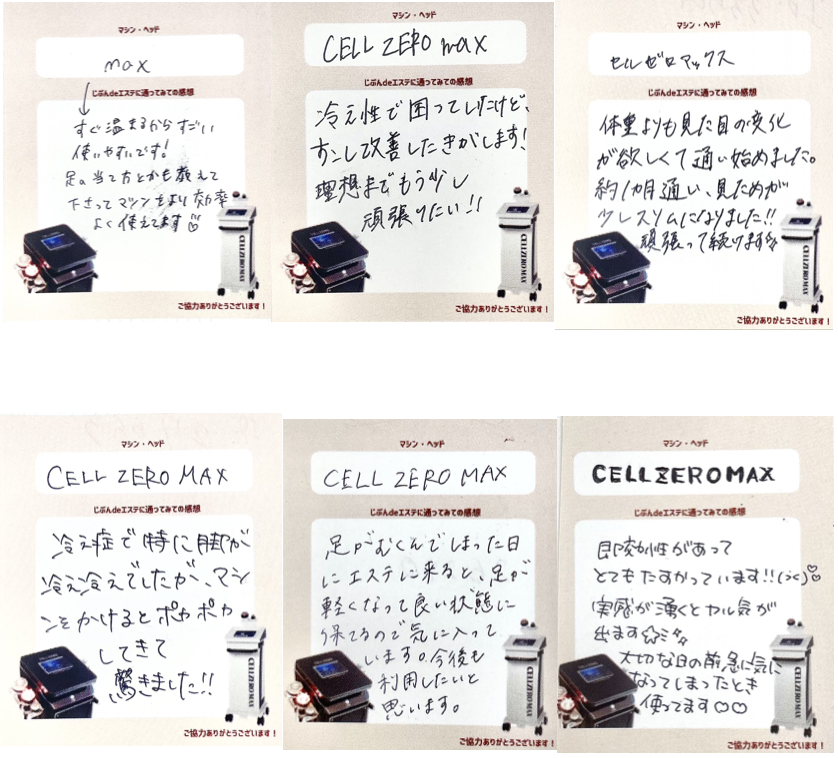 マシン・ヘッド
max
じぶんdeエステに通ってみての感想
すぐ温まるからすごい
使いやすいです!
足の当て方とかも教えて
下さってマシンをより効率
よく使えてます♡
CELLZERO MAX
ご協力ありがとうございます!
マシン・ヘッド
CELL ZERO max
じぶんdeエステに通ってみての感想
冷え性で困ってしたけど、
すこし改善したきがします!
理想までもう少し
頑張りたい!!
CELLZERO MAX
ご協力ありがとうございます!
マシン・ヘッド
セルゼロマックス
じぶんdeエステに通ってみての感想
体重よりも見た目の変化
が欲しくて通い始めました。
約1カ月通い、見ためが
少しスリムになりました!!
頑張って続けます☆
CELLZERO MAX
ご協力ありがとうございます!
マシン・ヘッド
CELL ZERO MAX
じぶんdeエステに通ってみての感想
冷え症で特に脚が
冷え冷えでしたが、マシ
ンをかけるとポカポカ
してきて
驚きました!!
CELLZERO MAX
ご協力ありがとうございます!
マシン・ヘッド
CELL ZERO MAX
じぶんdeエステに通ってみての感想
足がむくんでしまった日
にエステに来ると、足が
軽くなって良い状態に
保てるので気に入って
います。今後も
利用したいと
思います。
CELLZERO MAX
ご協力ありがとうございます!
マシン・ヘッド
CELLZEROMAX
じぶんdeエステに通ってみての感想
即効性があって
とてもたすかっています!!(づく)♡♡
実感が湧くとヤル気が
出ます☆ミ☆
大切な日の前、急に気に
なってしまったとき
使ってます♡♡
CELLZERO MAX
ご協力ありがとうございます!